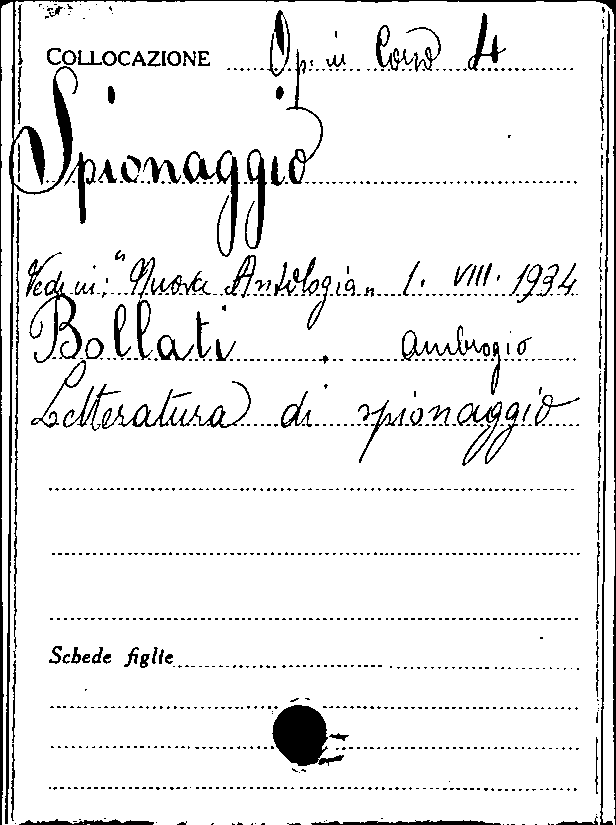 COLLOCAZIONE Op. in Corso 4
Spionaggio
Vedi in: "Nuova Antologia" 1. VIII. 1934
Bollati, Ambrogio
Letteratura di spionaggio
Schede figlie